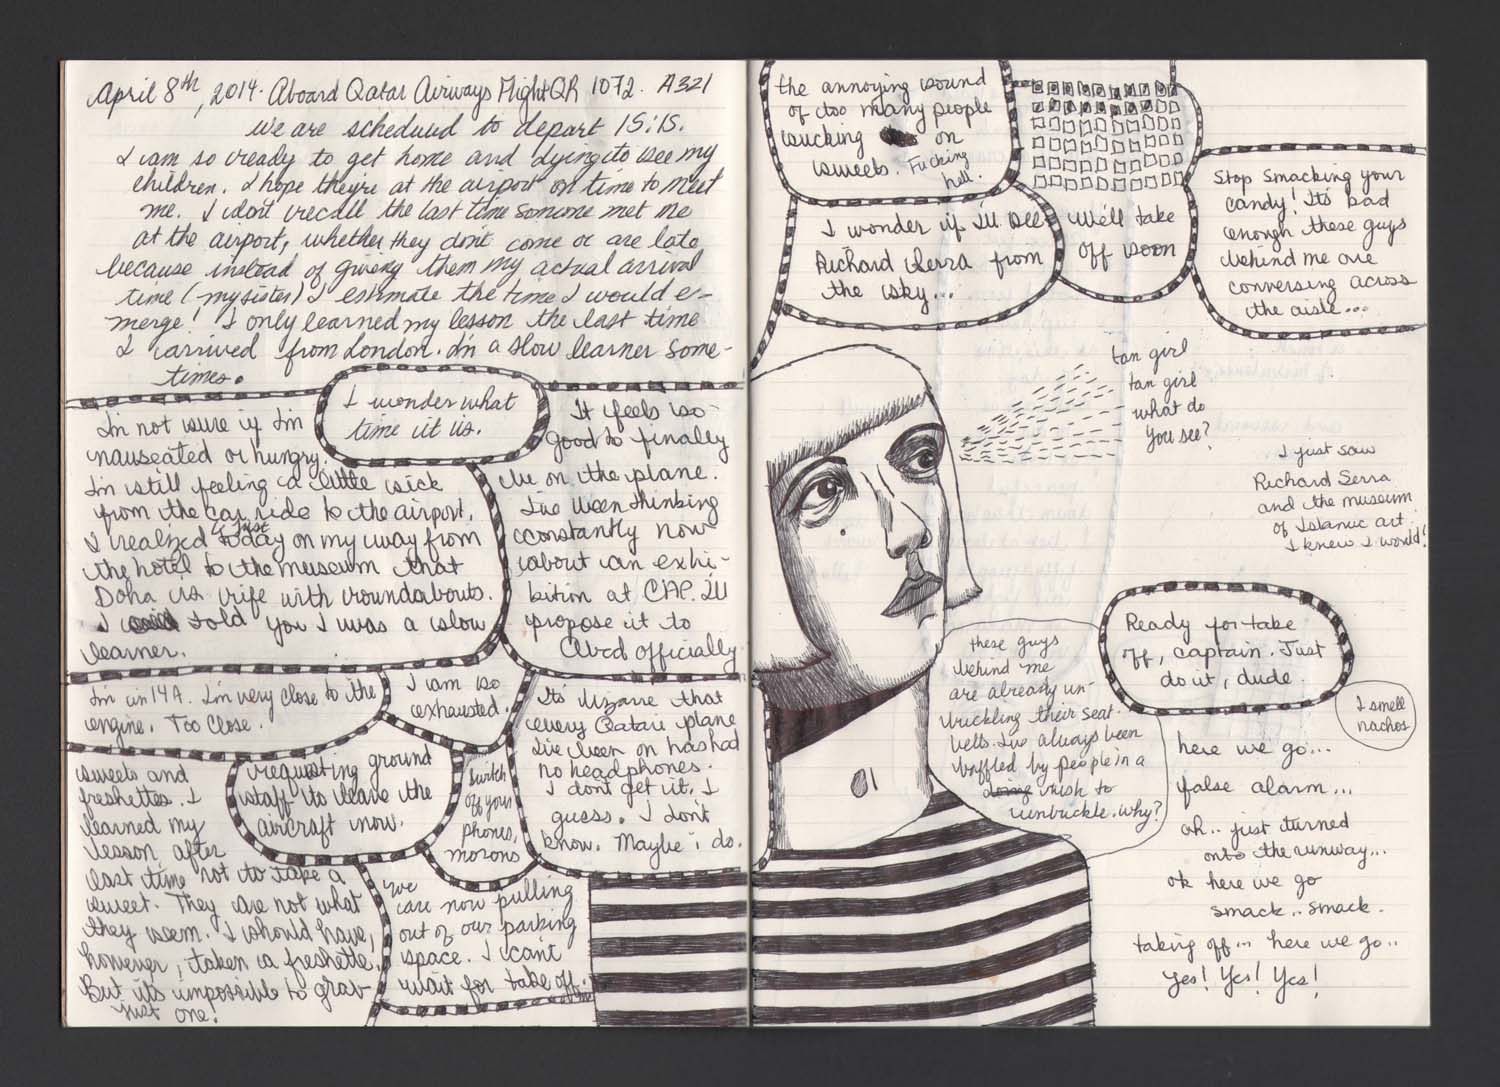 April 8th, 2014. Aboard Qatar Airways Flight QR 1072. A321
we are scheduled to depart 15:15.
I am so ready to get home and dying to see my
children. I hope they're at the airport on time to meet
me. I don't recall the last time someone met me
at the airport, whether they don't come or are late
because instead of giving them my actual arrival
time (my sister) I estimate the time I would e-
merge! I only learned my lesson the last time
I arrived from London. I'm a slow learner some-
times.
I'm not sure if I'm
nauseated or hungry.
I'm still feeling a little sick
from the car ride to the airport.
I realized just today on my way from
the hotel to the museum that
Doha is rife with roundabouts.
I told you I was a slow
learner.
I wonder what
time it is.
It feels so
good to finally
be on the plane.
I've been thinking
constantly now
about an exhi-
bition at CAP. I'll
propose it to
Abed officially.
I'm in 14A. I'm very close to the
engine. Too close.
I am so
exhausted.
It's bizarre that
every Qatari plane
I've been on has had
no headphones.
I don't get it. I
guess. I don't
know. Maybe i do.
requesting ground
staff to leave the
aircraft now.
switch
off your
phones,
morons
sweets and
freshettes. I
learned my
lesson after
last time not to take a
sweet. They are not what
they seem. I should have,
however, taken a freshette.
But it's impossible to grab
just one!
we
are now pulling
out of our parking
space. I can't
wait for take off.
the annoying sound
of too many people
sucking on
sweets. Fucking
hell.
I wonder if I'll see
Richard Serra from
the sky...
We'll take
off soon
Stop smacking your
candy! It's bad
enough these guys
behind me are
conversing across
the aisle...
tan girl
tan girl
what do
you see?
I just saw
Richard Serra
and the museum
of Islamic art
I knew I would!
these guys
behind me
are already un-
buckling their seat-
belts. I've always been
baffled by people in a
rush to
unbuckle. why?
Ready for take
off, captain. Just
do it, dude.
I smell
nachos
here we go...
false alarm...
oh.. just turned
onto the runway...
ok here we go
smack.. smack.
taking off... here we go..
Yes! Yes! Yes!